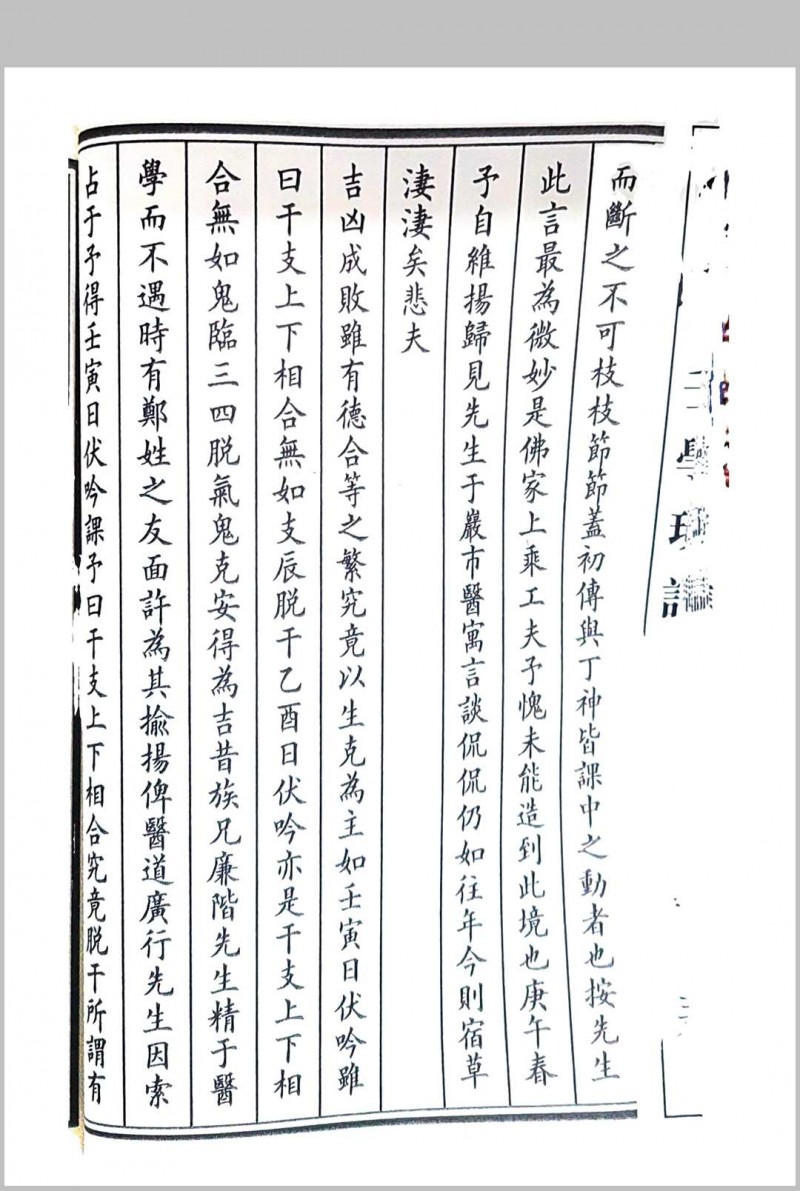 而斷之不可枝枝節節蓋初傳與丁神皆課中之動者也按先生
此言最為微妙是佛家上乘工夫予愧未能造到此境也庚午春
予自維揚歸見先生于巖市醫寓言談侃侃仍如往年今則宿草
淒淒矣悲夫
吉凶成敗雖有德合等之繁究竟以生克為主如壬寅日伏吟雖
曰干支上下相合無如支辰脱干乙酉日伏吟亦是干支上下相
合無如鬼臨三四脱氣鬼克安得為吉昔族兄廉階先生精于醫
學而不遇時有鄭姓之友面許為其揄揚俾醫道廣行先生因索
占于予得壬寅日伏吟課予曰干支上下相合究竟脱干所謂有